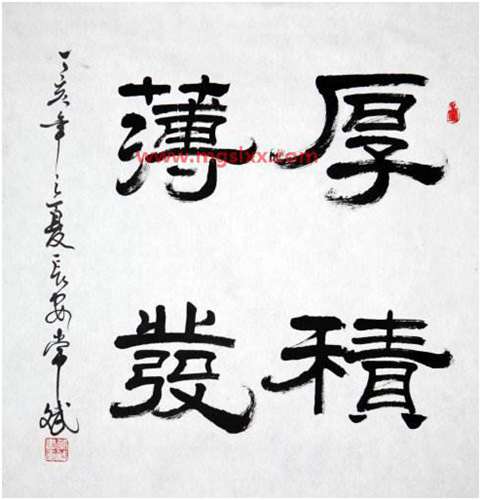 厚積
薄發
丁亥年之夏長安常斌
www.mgslxx.com